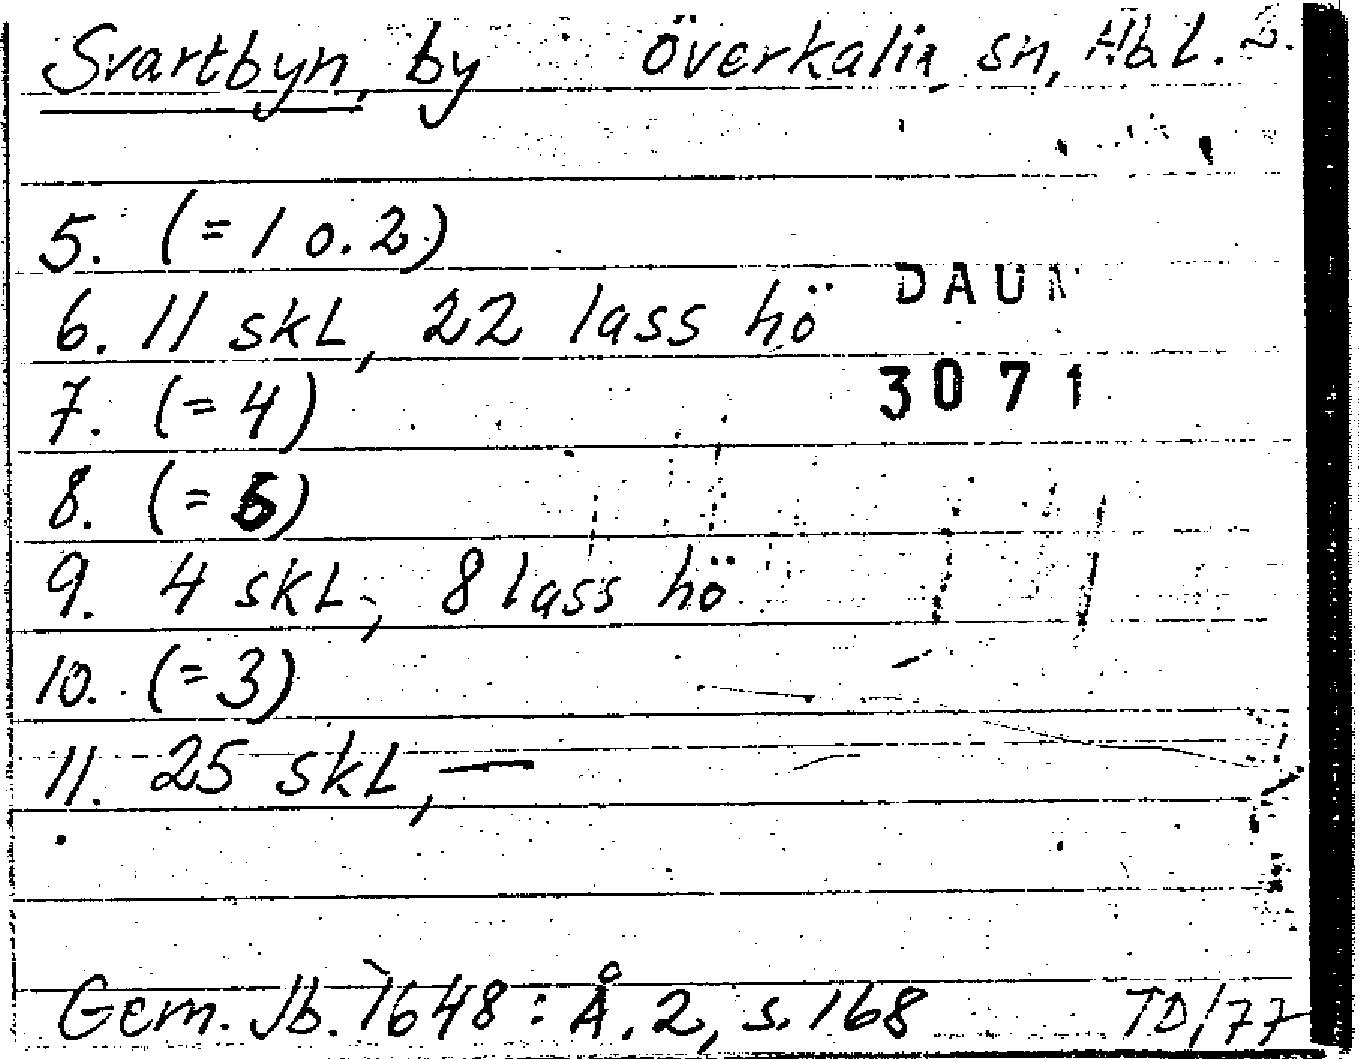 Svartbyn, by Överkalix sn, Nb l. 2.
5. (= 1 o. 2)
6. 11 skl, 22 lass hö DAUM
7. (= 4) 3071
8. (= 5)
9. 4 skl, 8 lass hö
10. (= 3)
11. 25 skl, —
Gem. Jb. 1648 : Å. 2, s. 168 TD/77